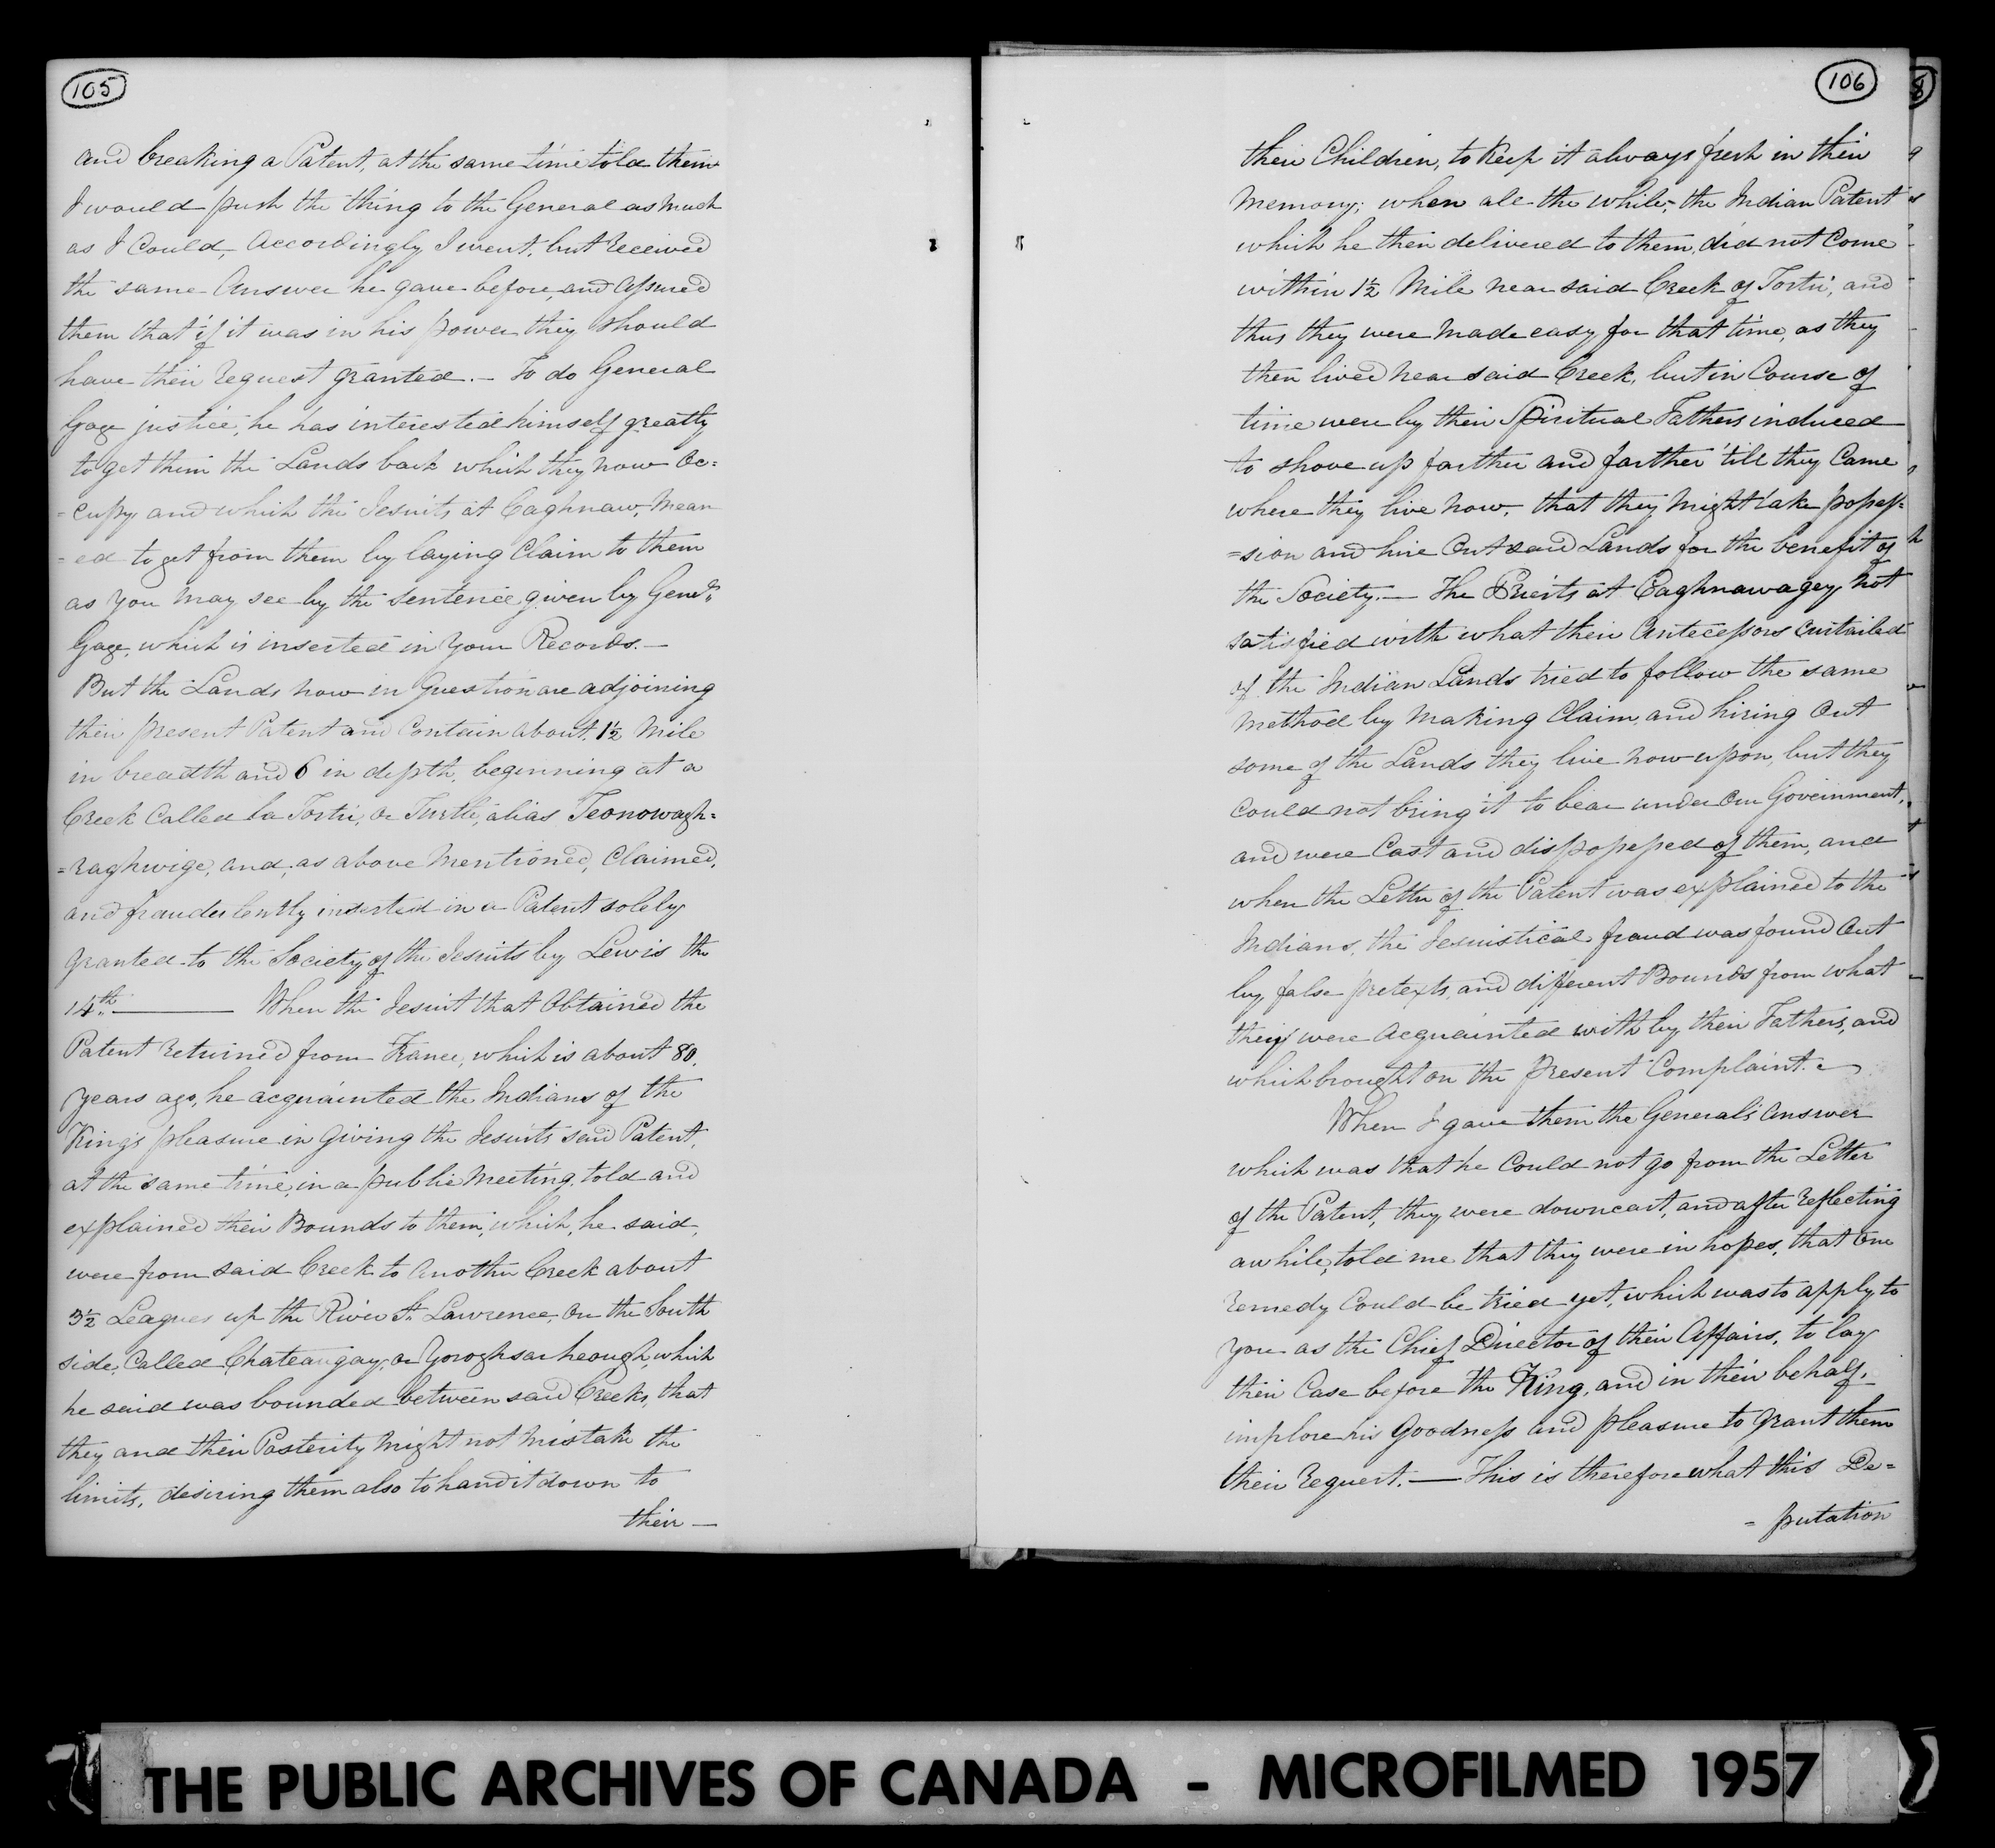 105
and breaking a Patent, at the same time told them
I would push the thing to the General as Much
as I Could, Accordingly I went, but received
the same Answer he gave before, and assured
them that if it was in his power they should
have their request granted. — To do General
Gage justice, he has interested himself greatly
to get them the Lands back which they now Oc=
=cupy, and which the Jesuits at Caghnaw, Mean
=ed to get from them by laying Claim to them
as You May see by the Sentence given by Genl.
Gage, which is inserted in Your Records. —
But the Lands now in Question are adjoining
their present Patent and Contain about 1½ Mile
in breadth and 6 in depth, beginning at a
Creek Called la Tortu, or Turtle, alias Teonowagh=
=raghwige, and, as above Mentioned, Claimed,
and fraudulently inserted in a Patent solely
granted to the Society of the Jesuits by Lewis the
14th. ——— When the Jesuit that Obtained the
Patent returned from France, which is about 80
years ago, he acquainted the Indians of the
King's pleasure in giving the Jesuits said Patent,
at the same time, in a public Meeting, told and
explained their Bounds to them, which, he said,
were from said Creek to Another Creek about
3½ Leagues up the River St. Lawrence, On the South
side, Called Chateaugay, or Yoroghsarheough, which
he said was bounded between said Creeks, that
they and their Posterity Might not Mistake the
limits, desiring them also to hand it down to
their —
106
their Children, to Keep it always fresh in their
Memory; when all the while, the Indian Patent
which he then delivered to them, did not Come
within 1½ Mile near said Creek of Tortu, and
thus they were Made easy for that time, as they
then lived near said Creek, but in Course of
time were by their Spiritual Fathers induced
to shove up farther and farther 'till they Came
where they live now, that they Might take posses=
=sion and hire Out said Lands for the benefit of
the Society. — The Priests at Caghnawagey, Not
satisfied with what their Antecessors Curtailed
of the Indian Lands tried to follow the same
Method by Making Claim, and hiring Out
some of the Lands they live now upon, but they
Could not bring it to bear under Our Government,
and were Cast and dispossessed of them, and
when the Letter of the Patent was explained to the
Indians, the Jesuistical fraud was found Out
by false pretexts, and different Bounds from what
they were Acquainted with by their Fathers, and
which brought on the present Complaint. —
When I gave them the General's Answer
which was that he Could not go from the Letter
of the Patent, they were downcast, and after reflecting
awhile, told me that they were in hopes, that One
remedy Could be tried yet, which was to apply to
You as the Chief Director of their Affairs, to lay
their Case before the King, and in their behalf,
implore his Goodness and pleasure to Grant them
their request. — This is therefore what this De=
=putation
THE PUBLIC ARCHIVES OF CANADA - MICROFILMED 1957